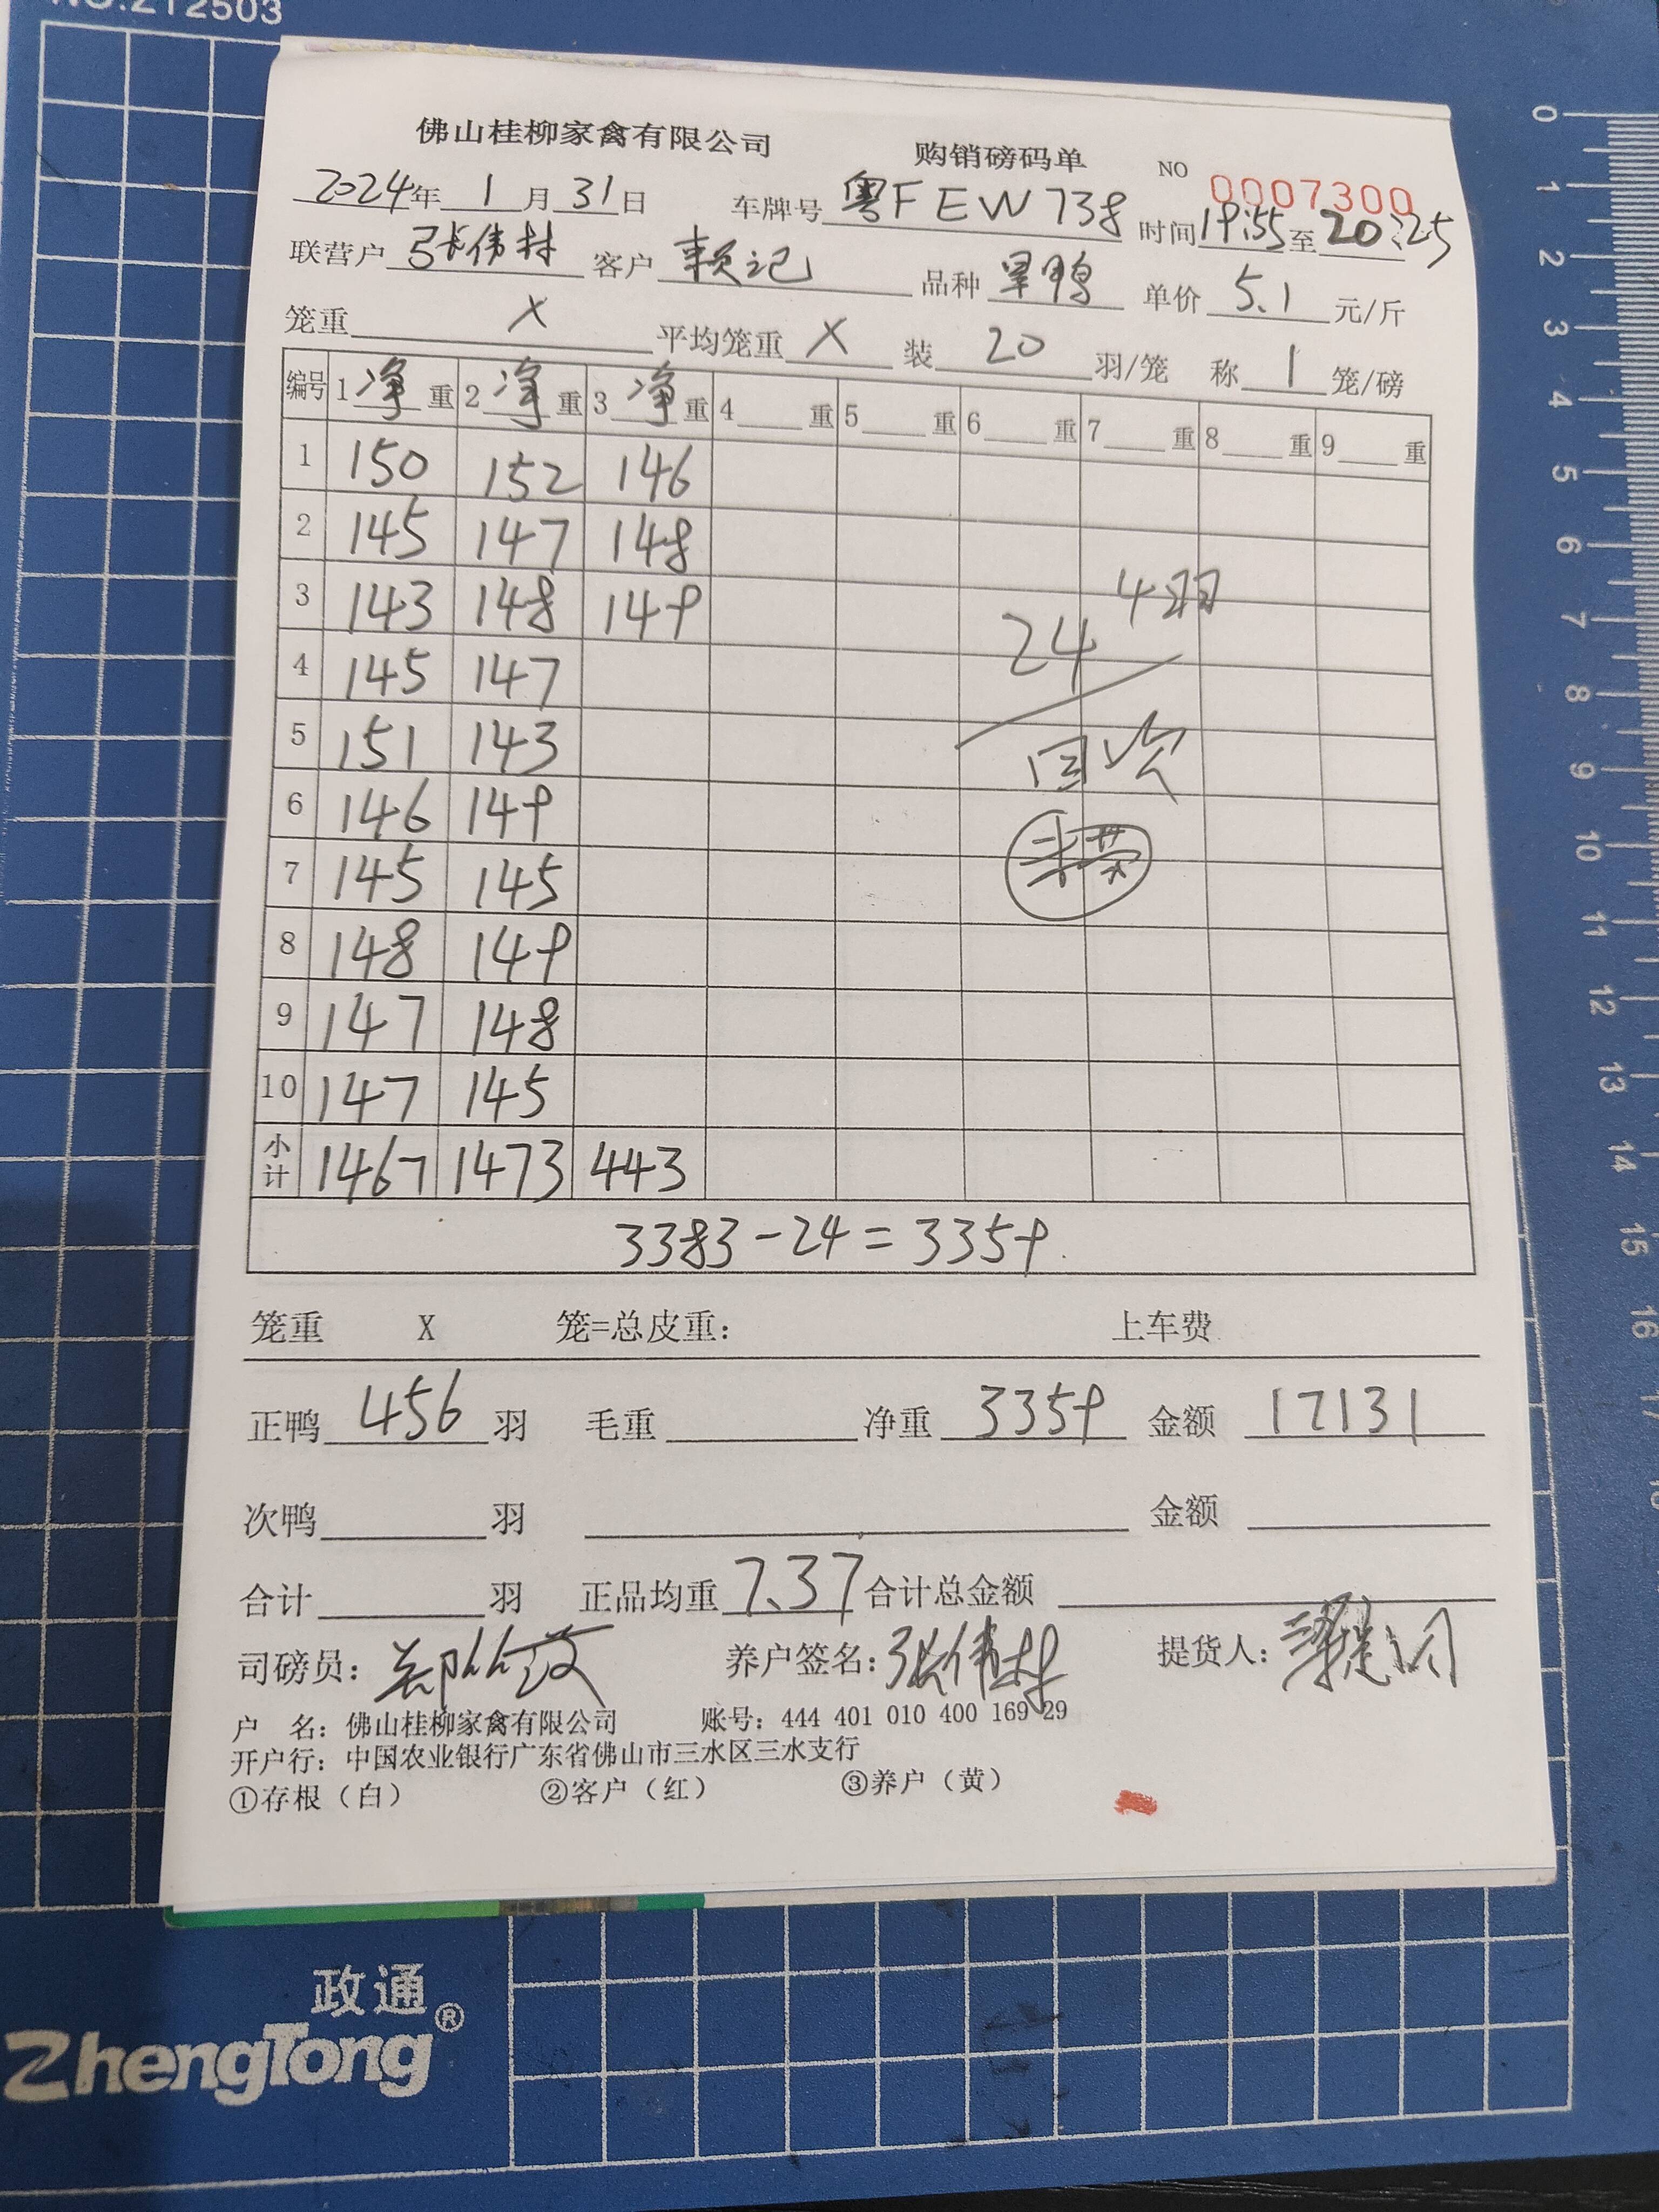 NO.212503
佛山桂柳家禽有限公司 购销磅码单 NO 0007300
2024年 1月 31日 车牌号 粤FEW738 时间 19:55 至 20:25
联营户 张伟林 客户 赖记 品种 旱鸭 单价 5.1 元/斤
笼重 X 平均笼重 X 装 20 羽/笼 称 1 笼/磅
编号 1净重 2净重 3净重 4 重 5 重 6 重 7 重 8 重 9 重
1 150 152 146
2 145 147 148
3 143 148 149
4羽
24
4 145 147
5 151 143
回次
6 146 149
7 145 145
8 148 149
9 147 148
10 147 145
小计 1467 1473 443
3383-24=3359
笼重 X 笼=总皮重: 上车费
正鸭 456 羽 毛重 净重 3359 金额 17131
次鸭 羽 金额
合计 羽 正品均重 7.37 合计总金额
司磅员: 养户签名: 张伟林 提货人:
户 名: 佛山桂柳家禽有限公司 账号: 444 401 010 400 169 29
开户行: 中国农业银行广东省佛山市三水区三水支行
①存根（白） ②客户（红） ③养户（黄）
0
1
2
3
4
5
6
7
8
9
10
11
12
13
14
15
16
17
政通®
ZhengTong